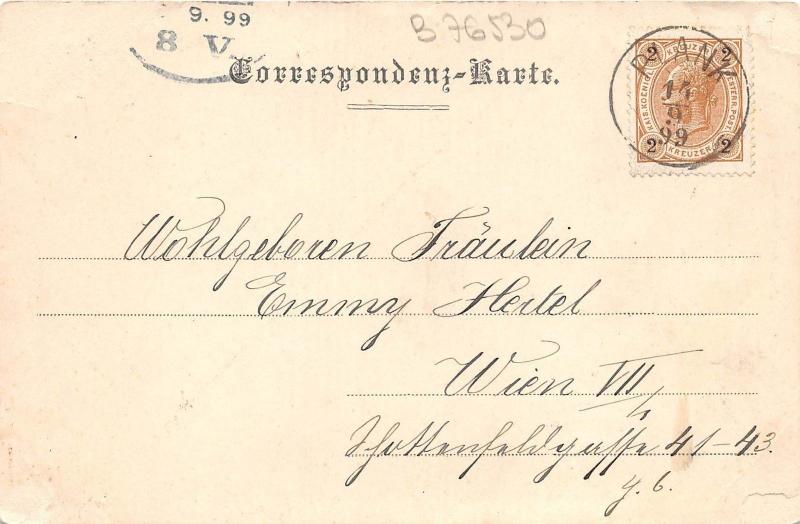 9. 99
8 V.
B 76530
Correspondenz-Karte.
2 KREUZER 2
KAIS. KOENIGL. OESTERR. POST.
2 KREUZER 2
14
9
99
Wohlgeboren Fräulein
Emmy Hertel
Wien VII/1
Schottenfeldgasse 41-43.